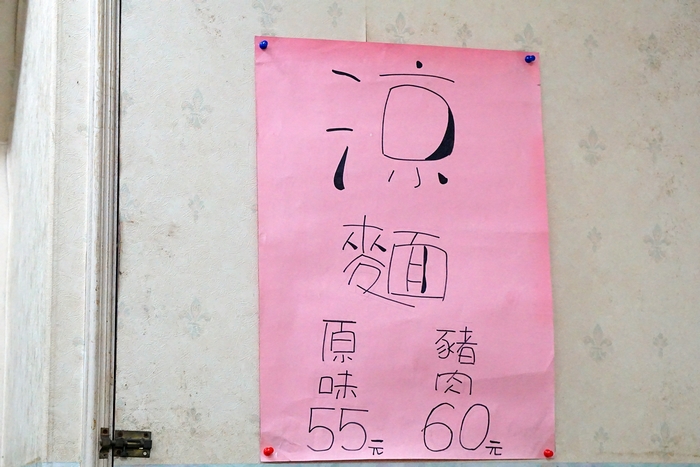 涼
麵
原味 55元
豬肉 60元